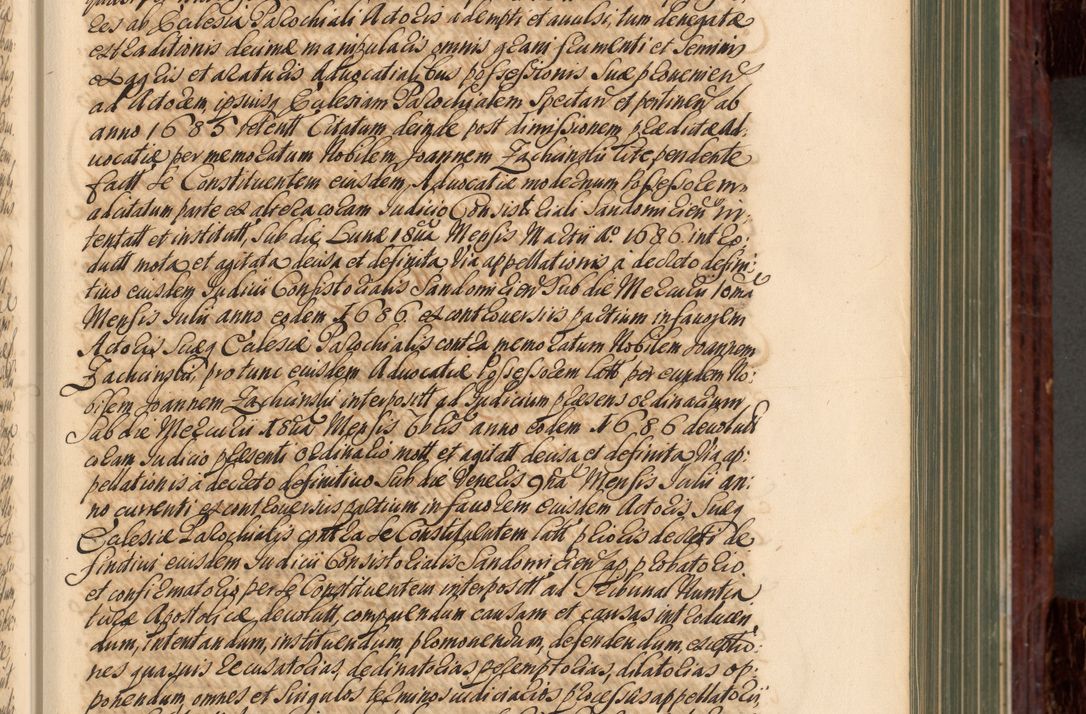 res ab Ecclesia Parochiali Actoris adempti et avulsi, tum denegatæ
extraditionis decimæ manipularis omnis grani frumenti et seminis
ex agris et araturis Advocatialibus possessionis suæ provenien
ad Actorem, ipsiusq Ecclesiam Parochialem spectan et pertinen ab
anno 1685 retentt Citatum deinde post dimissionem prædictæ Ad:
vocatiæ per memoratum Nobilem Joannem Zachcinski lite pendente
factt de Constituentem eiusdem Advocatiæ modernum Possessorem
adcitatum parte ex altera coram Iudicio Consistoriali Sandomirien in:
tentatt et institutt, sub die Lunæ 18va Mensis Martii Ao. 1686 intro:
ductt mota et agitata decisa et definita Via appellationis a decreto defini:
tivo eiusdem Iudicii Consistorialis Sandomirien sub die Mercurii 10ma
Mensis Iulii anno eodem 1686 ex controversiis partium in favorem
Actoris suæq Ecclesiæ Parochialis contra memoratum Nobilem Joannem
Zachcinski, pro tunc eiusdem Advocatiæ Possessorem latt per eundem No:
bilem Joannem Zachcinski interpositt ad Iudicium præsens ordinarium
sub die Mercurii 18va Mensis 7bris anno eodem 1686 devolutt
coram Iudicio præsenti ordinario mott et agitatt decisa et definita Via ap:
pellationis a decreto definitivo sub die Veneris 9na Mensis Iulii an:
no currenti ex controversiis partium in favorem eiusdem Actoris suæq
Ecclesiæ Parochialis contra de Constituentem latt prioris decreti de
finitivi eiusdem Iudicii Consistorialis Sandomirien approbatorio
et confirmatorio per de Constituentem interpositt ad Tribunal Nuntia
turæ Apostolicæ devolutt, comparendum causam et causas introducen:
dum, intentandum, instituendum promovendum, defendendum, exceptio:
nes quasvis recusatorias, declinatorias, peremptorias, dilatorias op:
ponendum omnes et singulos terminos iudiciarios processus appellatorii